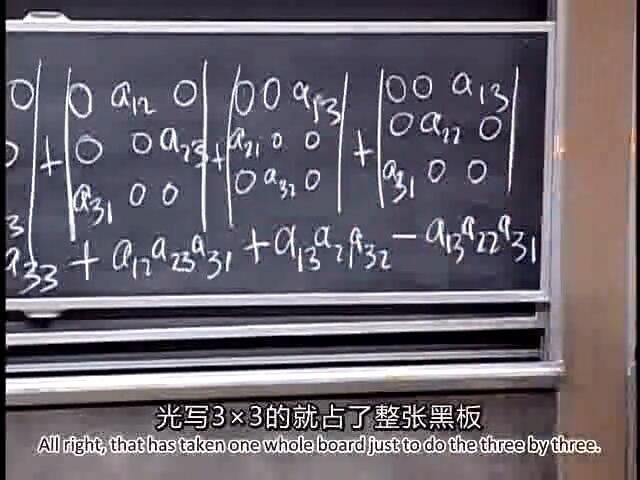 0 | 0 a₁₂ 0 | | 0 0 a₁₃ | | 0 0 a₁₃ |
+ | 0 0 a₂₃ | + | a₂₁ 0 0 | + | 0 a₂₂ 0 |
| a₃₁ 0 0 | | 0 a₃₂ 0 | | a₃₁ 0 0 |
a₃₃ + a₁₂a₂₃a₃₁ + a₁₃a₂₁a₃₂ − a₁₃a₂₂a₃₁
光写3×3的就占了整张黑板
All right, that has taken one whole board just to do the three by three.